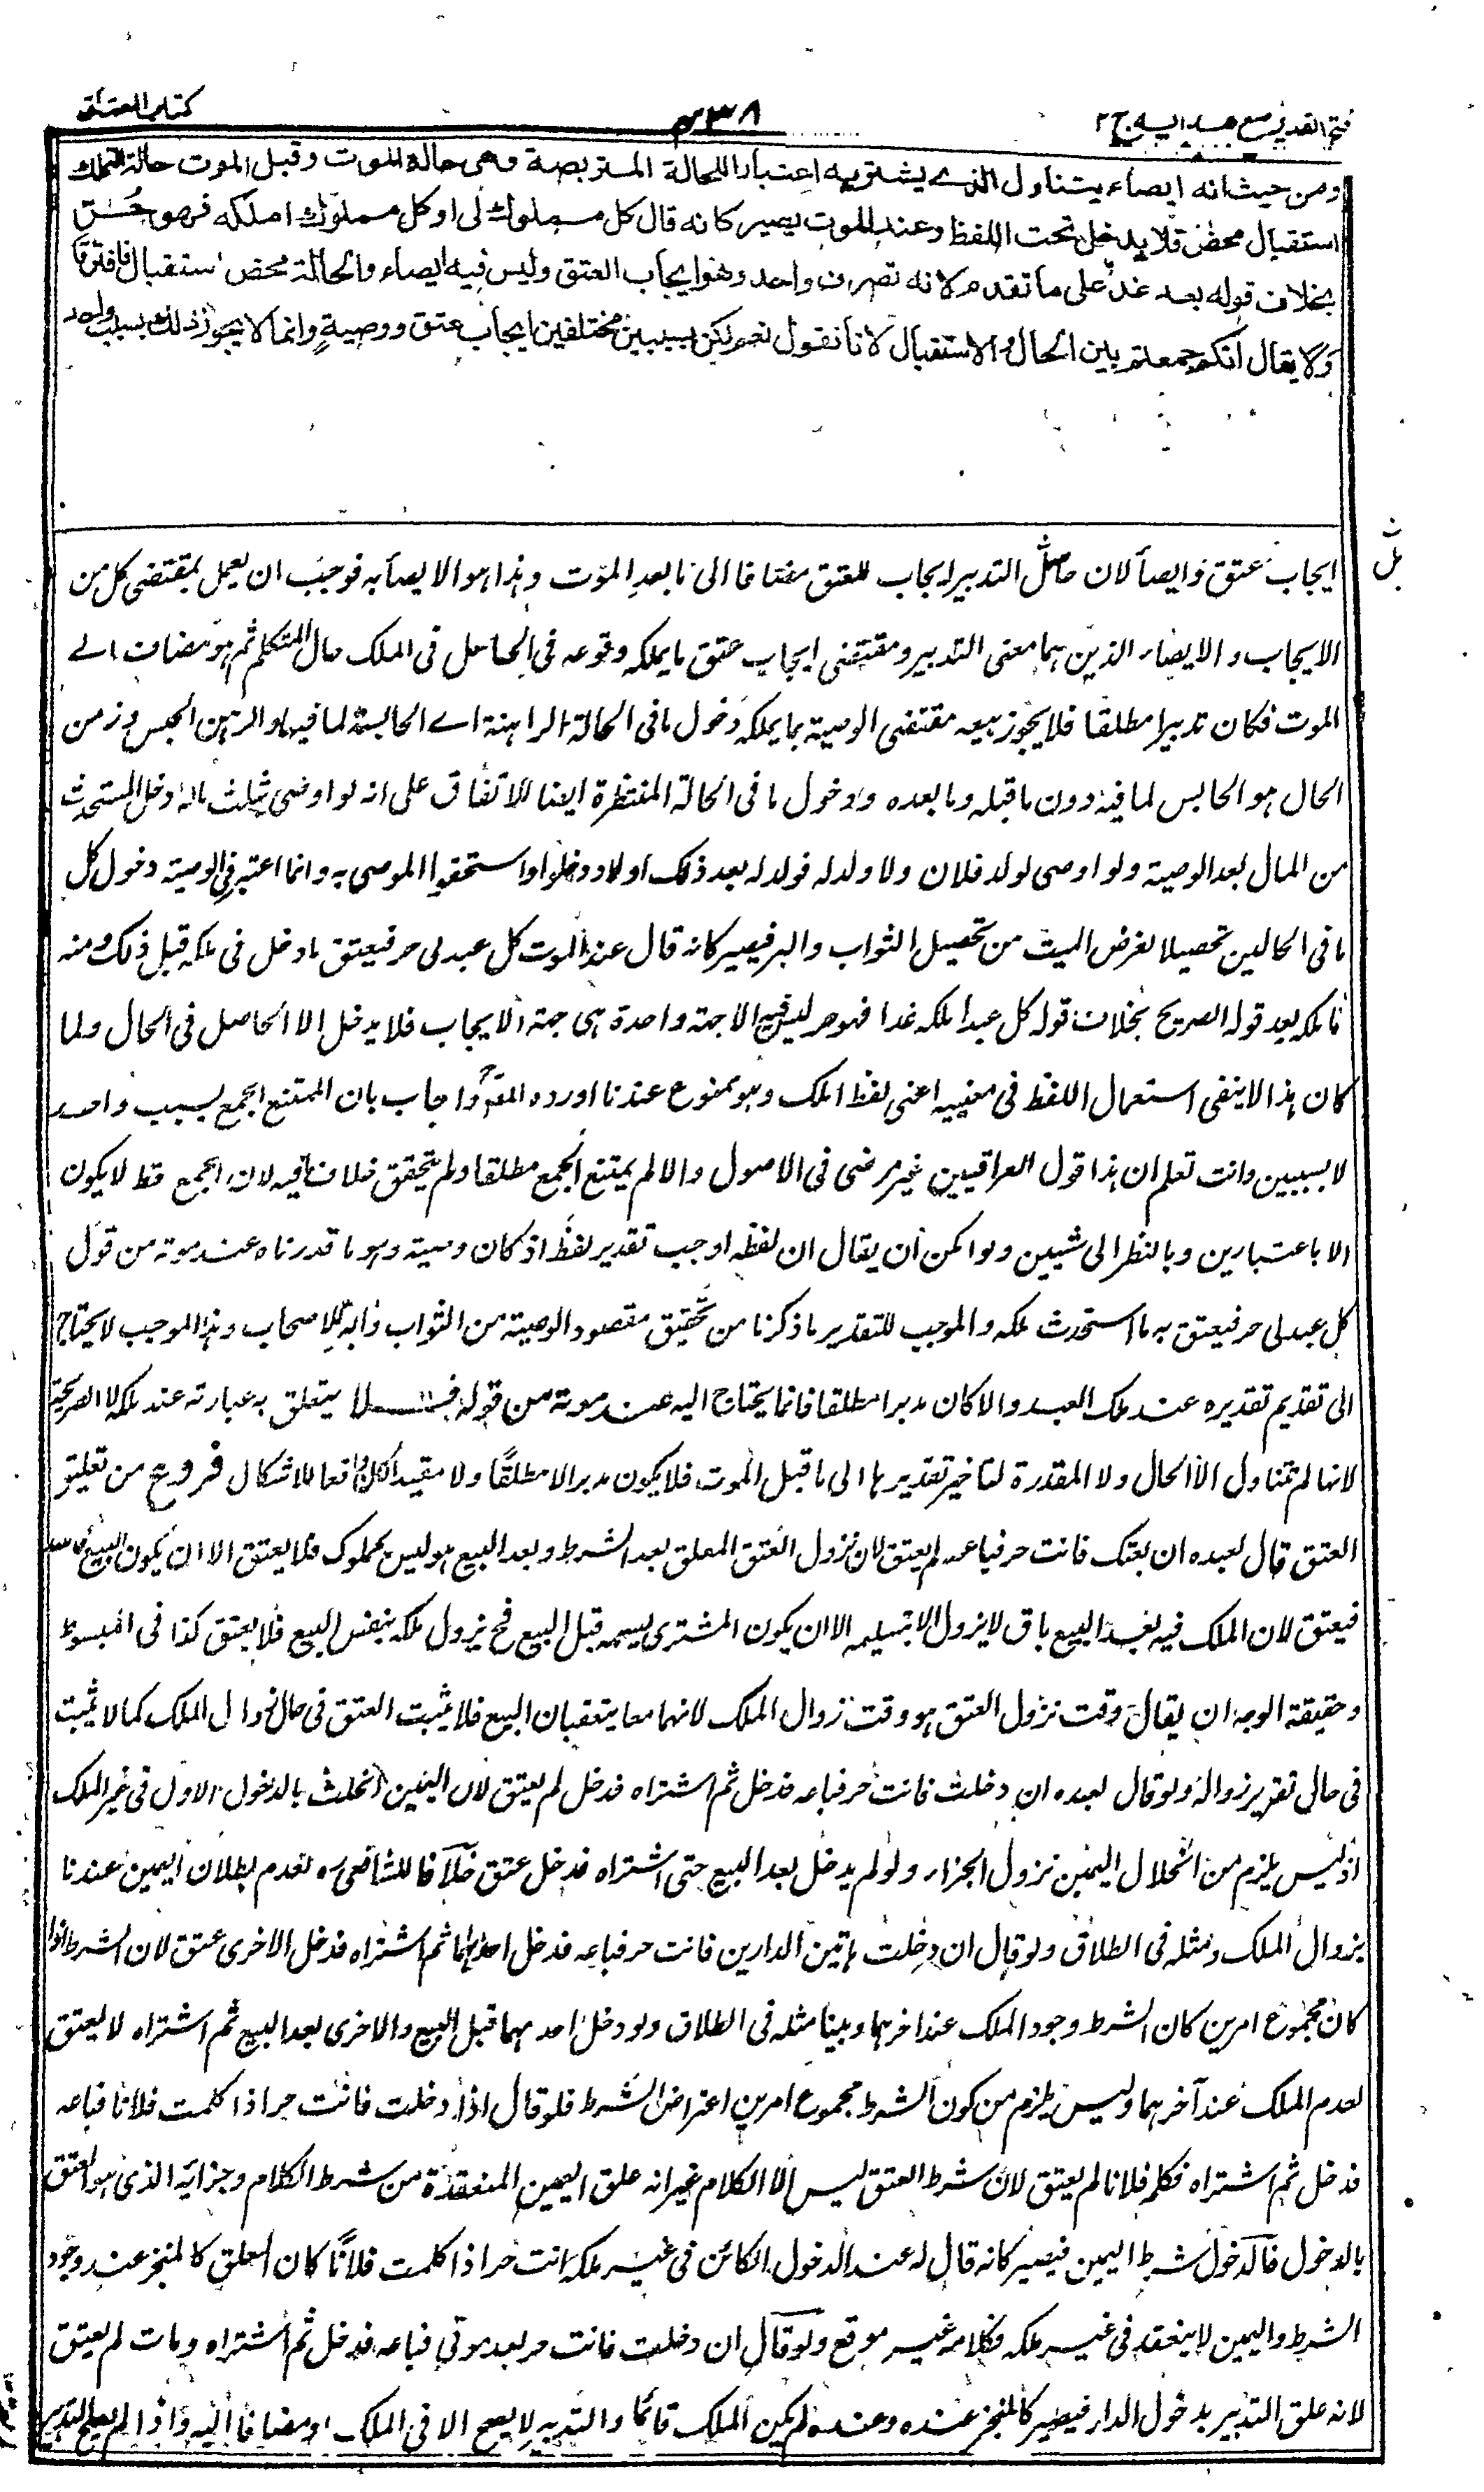 فتح القدير مع هدايه ج ٢
٣٨م
كتاب العتاق
ومن حيث انه ايصاء يتناول الذي يشتريه اعتبارا للحالة المتربصة وهى حالة الموت وقبل الموت حالة التملك
استقبال محض فلا يدخل تحت اللفظ وعند الموت يصير كانه قال كل مملوك لى او كل مملوك املكه فهو حُر
بخلاف قوله بعد غد على ما تقدم لانه تصرف واحد وهو ايجاب العتق وليس فيه ايصاء والحالة محض استقبال فافترقا
ولا يقال انكم جمعتم بين الحال والاستقبال لانا نقول نعم لكن بسببين مختلفين ايجاب عتق ووصية وانما لا يجوز ذلك بسبب واحد
ايجاب عتق وايصاء لان حاصل التدبير ايجاب للعتق مضافا الى ما بعد الموت وهذا هو الايصاء به فوجب ان يعمل بمقتضى كل من
الايجاب والايصاء الذين هما معنى التدبير ومقتضى ايجاب عتق ما يملكه وقوعه فى الحاصل فى الملك حال التكلم ثم هو مضاف الے
الموت فكان تدبيرا مطلقا فلا يجوز بيعه مقتضى الوصية بما يملكه دخول ما فى الحالة الراهنة اے الحابسة لما فيها والرهن الحبس وزمن
الحال هو الحابس لما فيه دون ما قبله وما بعده ودخول ما فى الحالة المنتظرة ايضا للاتفاق على انه لو اوصى بثلث ماله دخل المستحدث
من المال بعد الوصية ولو اوصى لولد فلان ولا ولد له فولد له بعد ذلك اولاد دخلوا واستحقوا الموصى به وانما اعتبر فى الوصية دخول كل
ما فى الحالين تحصيلا لغرض الميت من تحصيل الثواب والبر فيصير كانه قال عند الموت كل عبد لى حر فيعتق ما دخل فى ملكه قبل ذلك ومنه
ما ملكه بعد قوله الصريح بخلاف قوله كل عبد املكه غدا فهو حر ليس فيه الا جهة واحدة هى جهة الايجاب فلا يدخل الا الحاصل فى الحال ولما
كان هذا لا ينفى استعمال اللفظ فى معنييه اعنى لفظ املك وهو ممنوع عندنا اورده المصـ واجاب بان الممتنع الجمع بسبب واحد
لا بسببين وانت تعلم ان هذا قول العراقيين غير مرضى فى الاصول والا لم يمتنع الجمع مطلقا ولم يتحقق خلاف فيه لان الجمع قط لا يكون
الا باعتبارين وبالنظر الى شيئين ولو امكن ان يقال ان لفظه اوجب تقدير لفظ اذ كان وصية وهو ما قدرناه عند موته من قول
كل عبد لى حر فيعتق به ما استحدث ملكه والموجب للتقدير ما ذكرنا من تحقيق مقصود الوصية من الثواب للاصحاب وهذا الموجب لا يحتاج
الى تقديم تقديره عند ملك العبد والا كان مدبرا مطلقا فانما يحتاج اليه عند موته من قوله فـلا يتعلق به عبارته عند ملكه لا الصريحة
لانها لم تتناول الا الحال ولا المقدرة لتاخير تقديرها الى ما قبل الموت فلا يكون مدبرا لا مطلقًا ولا مقيدا كان دافعا للاشكال فروع من تعليق
العتق قال لعبده ان بعتك فانت حر فباعه لم يعتق لان نزول العتق المعلق بعد الشرط وبعد البيع هو ليس بمملوك فلا يعتق الا ان يكون البيع فاسد
فيعتق لان الملك فيه بعد البيع باق لا يزول الا بتسليمه الا ان يكون المشترى يسلمه قبل البيع فح يزول ملكه بنفس البيع فلا يعتق كذا فى المبسوط
وحقيقة الوجه ان يقال وقت نزول العتق هو وقت زوال الملك لانهما معا يتعقبان البيع فلا يثبت العتق فى حال زوال الملك كما لا يثبت
فى حال تقرير زواله ولو قال لعبده ان دخلت فانت حر فباعه فدخل ثم اشتراه فدخل لم يعتق لان اليمين انحلت بالدخول الاول فى غير الملك
اذ ليس يلزم من انحلال اليمين نزول الجزاء ولو لم يدخل بعد البيع حتى اشتراه فدخل عتق خلافا للشافعى ره لعدم بطلان اليمين عندنا
بزوال الملك ومثله فى الطلاق ولو قال ان دخلت هاتين الدارين فانت حر فباعه فدخل احداهما ثم اشتراه فدخل الاخرى عتق لان الشرط اذا
كان مجموع امرين كان الشرط وجود الملك عند اخرهما وبينا مثله فى الطلاق ولو دخل احدهما قبل البيع والاخرى بعد البيع ثم اشتراه لا يعتق
لعدم الملك عند آخرهما وليس يلزم من كون الشرط مجموع امرين اعتراض الشرط فلو قال اذا دخلت فانت حر اذا كلمت فلانا فباعه
فدخل ثم اشتراه فكلم فلانا لم يعتق لان شرط العتق ليس الا الكلام غير انه علق اليمين المنعقدة من شرط الكلام وجزائه الذى هو العتق
بالدخول فالدخول شرط اليمين فيصير كانه قال له عند الدخول الكائن فى غير ملكه انت حر اذا كلمت فلانًا كان المعلق كالمنجز عند وجود
الشرط واليمين لا ينعقد فى غير ملكه فكلامه غير موقع ولو قال ان دخلت فانت حر بعد موتى فباعه فدخل ثم اشتراه ومات لم يعتق
لانه علق التدبير بدخول الدار فيصير كالمنجز عنده وعنده لم يكن الملك قائما والتدبير لا يصح الا فى الملك او مضافا اليه واذا لم يصح التدبير